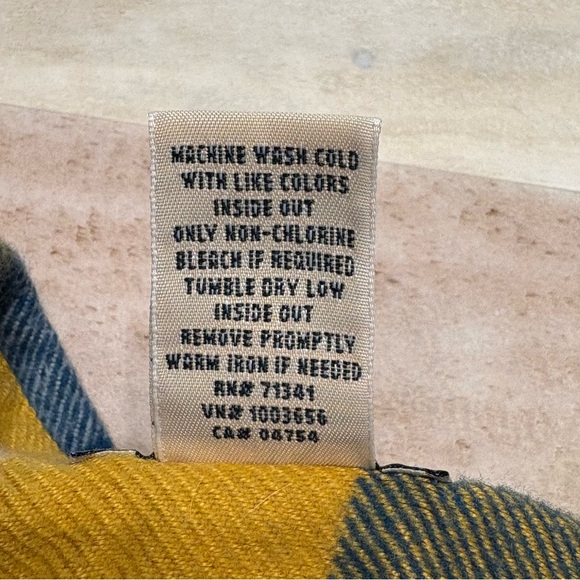 MACHINE WASH COLD
WITH LIKE COLORS
INSIDE OUT
ONLY NON-CHLORINE
BLEACH IF REQUIRED
TUMBLE DRY LOW
INSIDE OUT
REMOVE PROMPTLY
WARM IRON IF NEEDED
RN# 71341
VN# 1003656
CA# 04754